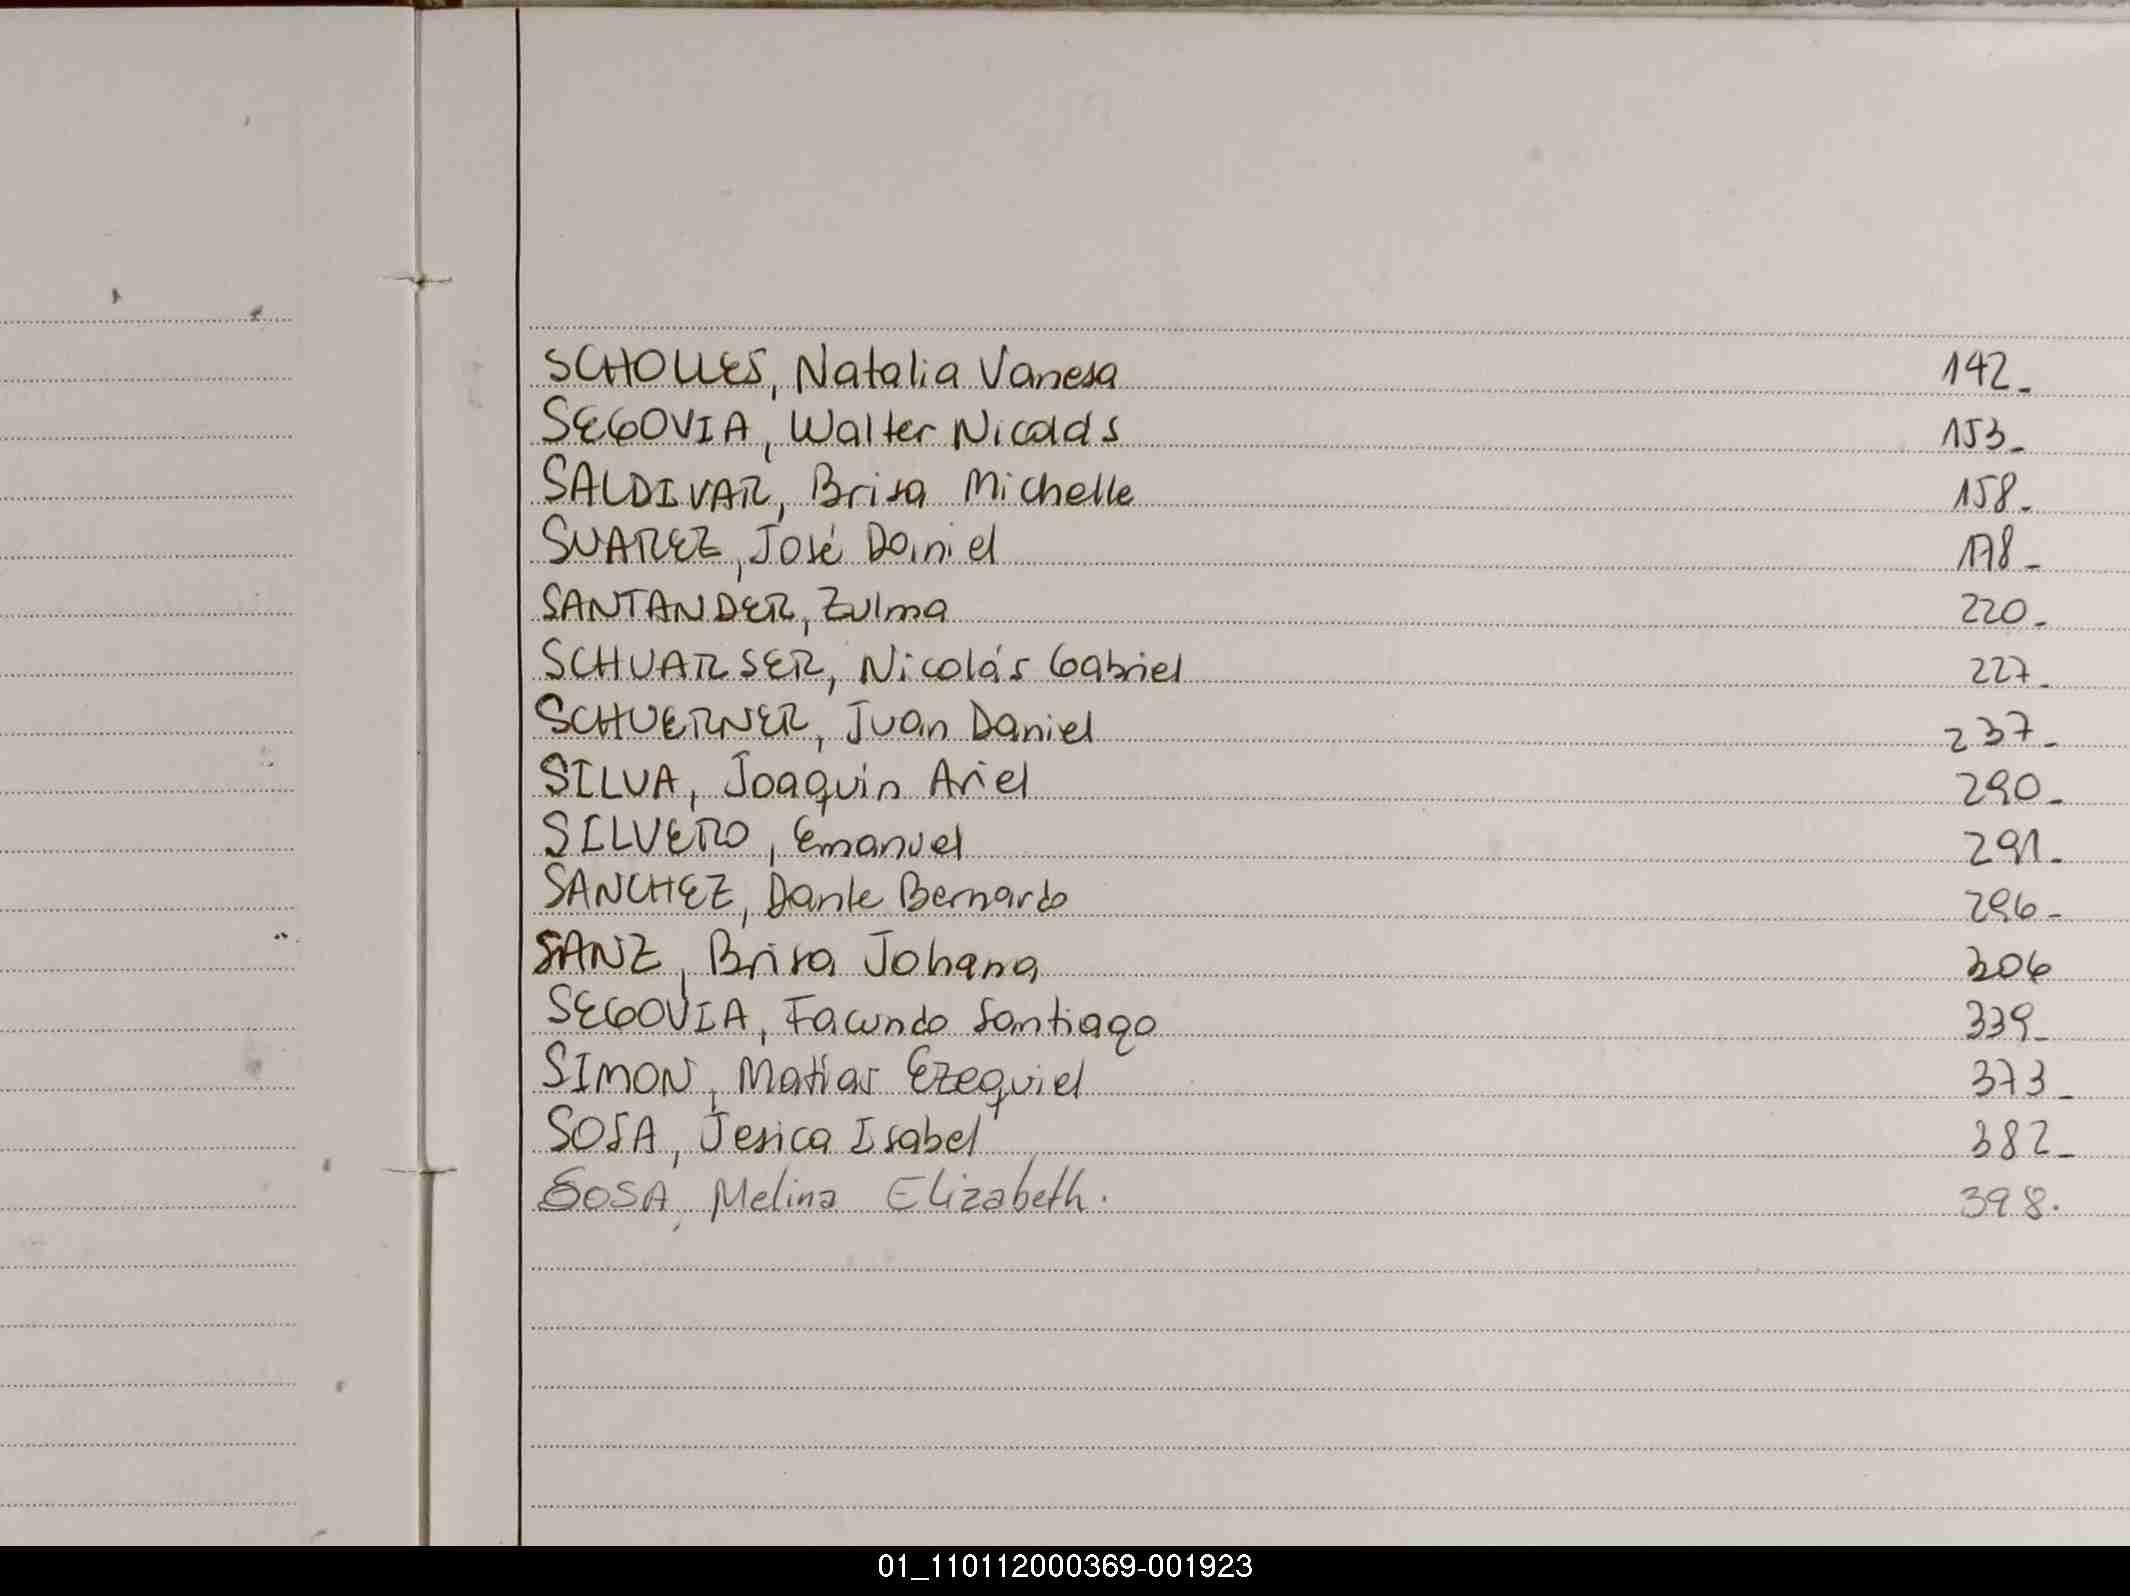 SCHOLLES, Natalia Vanesa 142_
SEGOVIA, Walter Nicolás 153_
SALDIVAR, Brisa Michelle 158_
SUAREZ, José Daniel 178_
SANTANDER, Zulma 220_
SCHUARSER, Nicolás Gabriel 227_
SCHUERNER, Juan Daniel 237_
SILVA, Joaquin Ariel 290_
SILVERO, Emanuel 291_
SANCHEZ, Dante Bernardo 296_
SANZ, Brisa Johana 306
SEGOVIA, Facundo Santiago 339_
SIMON, Matías Ezequiel 373_
SOSA, Jesica Isabel 382_
SOSA, Melina Elizabeth. 398.
01_110112000369-001923